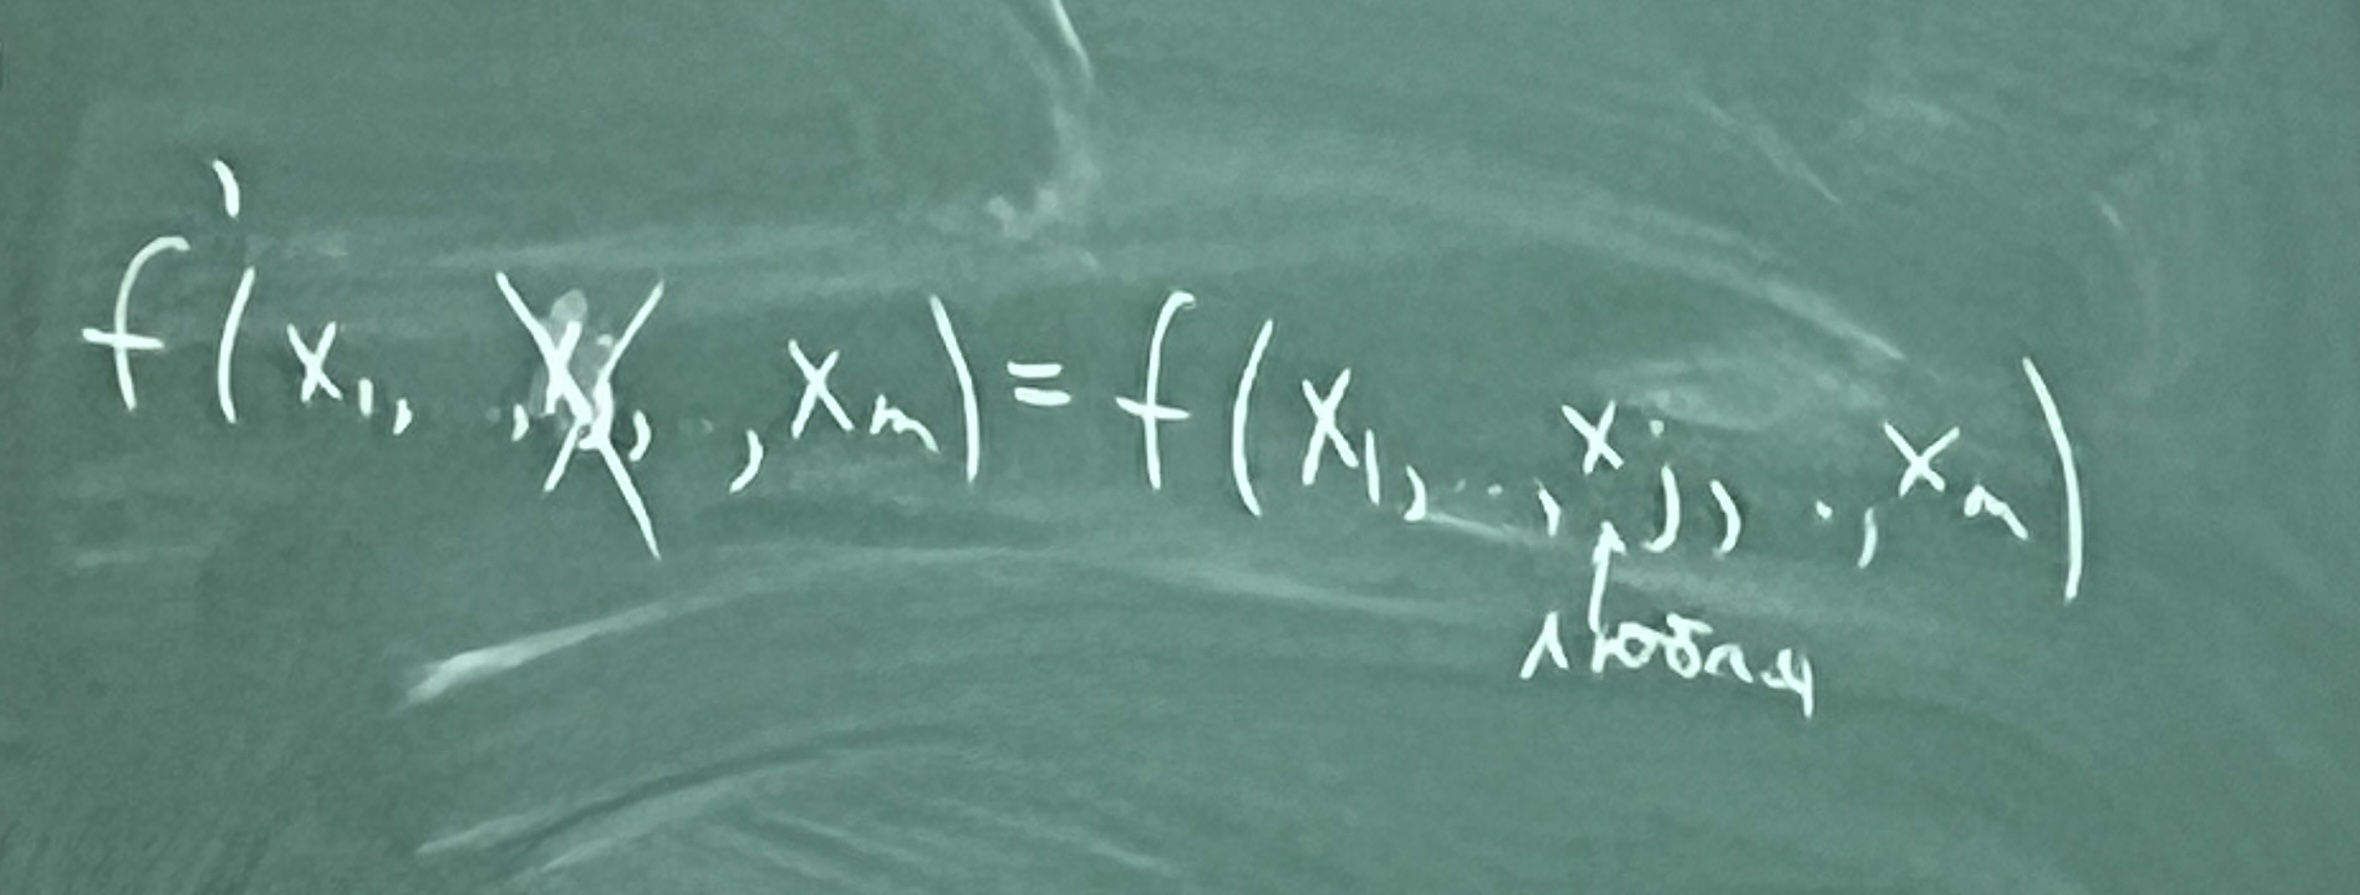 f'(x₁, ..., x̶ⱼ̶, ..., xₘ) = f(x₁, ..., xⱼ, ..., xₘ)
любая